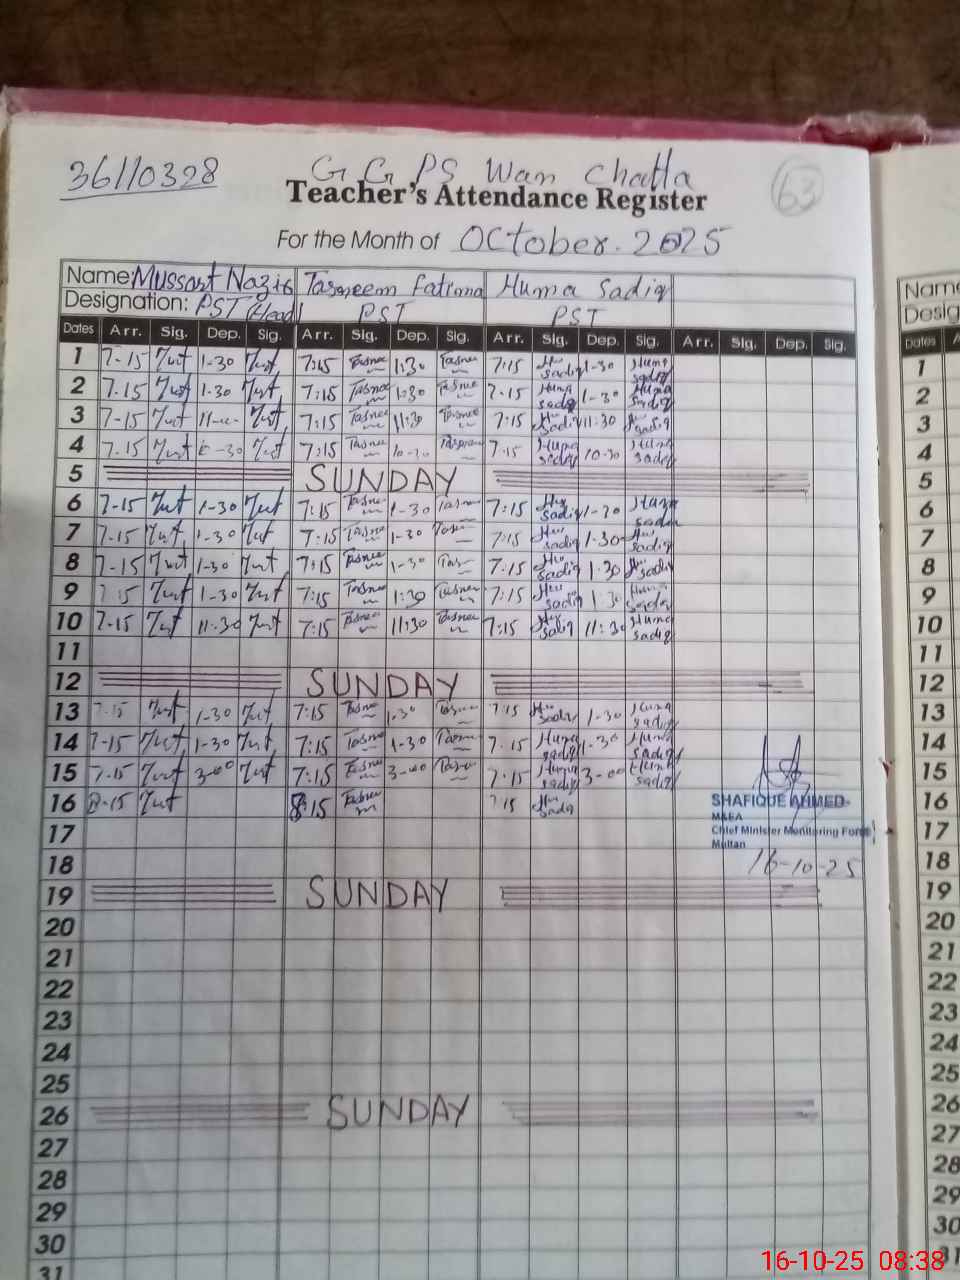 36110328
G G PS Wan Chatta
63
Teacher's Attendance Register
For the Month of October. 2025
Name: Mussart Nazir Tasneem Fatima Huma Sadiq
Designation: PST (Head) PST PST
Dates Arr. Sig. Dep. Sig. Arr. Sig. Dep. Sig. Arr. Sig. Dep. Sig. Arr. Sig. Dep. Sig.
1 7-15 1-30 7:15 Tasnee 1:30 Tasnee 7:15 Hu sadiq 1-30 Huma sadiq
2 7-15 1-30 7:15 Tasnee 1:30 Tasnee 7-15 Huma sadiq 1-30 Huma sadiq
3 7-15 7:15 Tasnee 11:30 Tasnee 7:15 Hu sadiq 11-30 Hu sadiq
4 7-15 7:15 Tasnee 7-15 Huma sadiq 10-30 Huma sadiq
5 SUNDAY
6 7-15 1-30 7:15 Tasnee 1-30 7:15 Hu sadiq 1-30 Huma sadiq
7 7-15 1-30 7:15 Tasnee 1-30 7:15 Hu sadiq 1-30 Hu sadiq
8 7-15 1-30 7:15 Tasnee 1-30 Tas 7:15 Hu sadiq 1-30 Hu sadiq
9 7-15 1-30 7:15 Tasnee 1:30 Tasnee 7:15 Hu sadiq 1-30 Huma sadiq
10 7-15 11-30 7:15 Tasnee 11:30 Tasnee 7:15 Hu sadiq 11:30 Huma sadiq
11
12 SUNDAY
13 7-15 1-30 7:15 Tasnee 1-30 Tasnee 7:15 Hu sadiq 1-30 Huma sadiq
14 7-15 1-30 7:15 Tasnee 1-30 Tasnee 7-15 Huma sadiq 1-30 Huma sadiq
15 7-15 3-00 7:15 Tasnee 3-00 Tasnee 7-15 Huma sadiq 3-00 Huma sadiq
16 8-15 8:15 Tasnee 7:15 Hu sadiq
SHAFIQUE AHMED
M&EA
17
Chief Minister Monitoring Force
Multan
18
16-10-25
19 SUNDAY
20
21
22
23
24
25
26 SUNDAY
27
28
29
30
31
Name
Desig
Dates
1
2
3
4
5
6
7
8
9
10
11
12
13
14
15
16
17
18
19
20
21
22
23
24
25
26
27
28
29
30
31
16-10-25 08:38